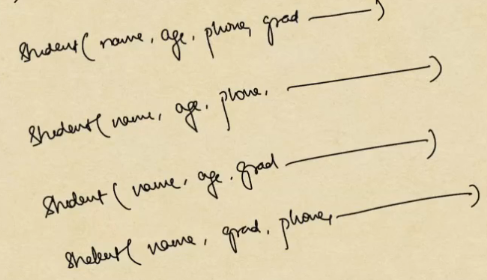 Student( name, age, phone, grad ——)
Student( name, age, phone, ——)
Student ( name, age, grad ——)
Student( name, grad, phone, ——)